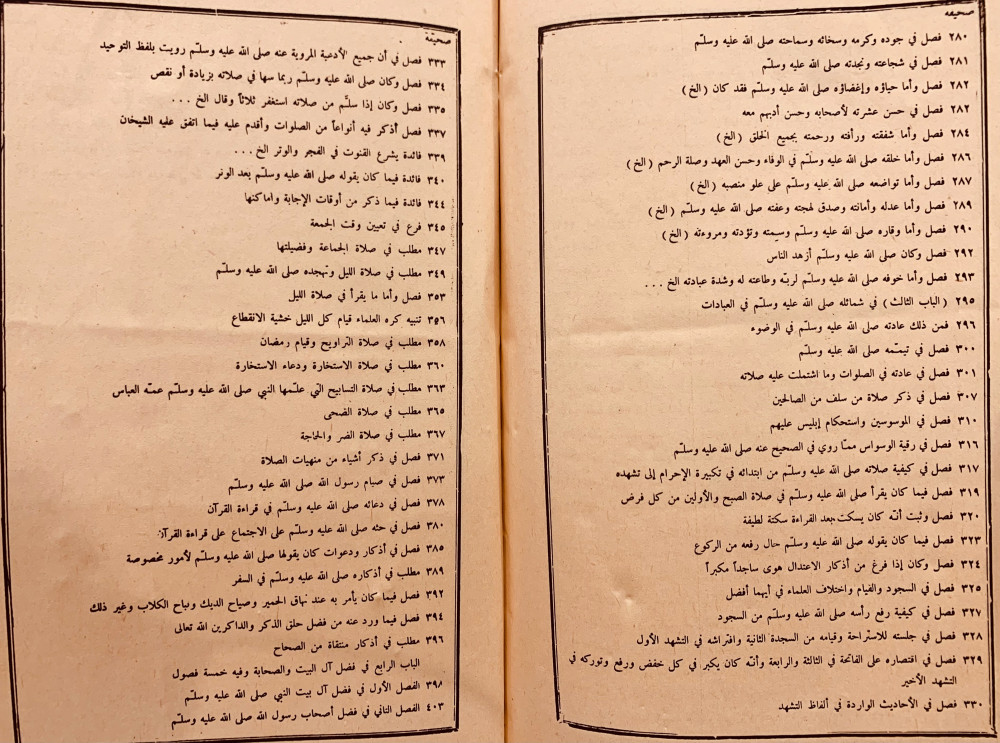 صحيفه
٢٨٠ فصل في جوده وكرمه وسخائه وسماحته صلى الله عليه وسلم
٢٨١ فصل في شجاعته ونجدته صلى الله عليه وسلم
٢٨٢ فصل وأما حياؤه وإغضاؤه صلى الله عليه وسلم فقد كان (الخ)
٢٨٢ فصل في حسن عشرته لأصحابه وحسن أدبهم معه
٢٨٤ فصل وأما شفقته ورأفته ورحمته بجميع الخلق (الخ)
٢٨٦ فصل وأما خلقه صلى الله عليه وسلم في الوفاء وحسن العهد وصلة الرحم (الخ)
٢٨٧ فصل وأما تواضعه صلى الله عليه وسلم على علو منصبه (الخ)
٢٨٩ فصل وأما عدله وأمانته وصدق لهجته وعفته صلى الله عليه وسلم (الخ)
٢٩٠ فصل وأما وقاره صلى الله عليه وسلم وسيمته وتؤدته ومروءته (الخ)
٢٩٢ فصل وكان صلى الله عليه وسلم أزهد الناس
٢٩٣ فصل وأما خوفه صلى الله عليه وسلم لربه وطاعته له وشدة عبادته الخ . . .
٢٩٥ (الباب الثالث) في شمائله صلى الله عليه وسلم في العبادات
٢٩٦ فمن ذلك عادته صلى الله عليه وسلم في الوضوء
٣٠٠ فصل في تيممه صلى الله عليه وسلم
٣٠١ فصل في عادته في الصلوات وما اشتملت عليه صلاته
٣٠٧ فصل في ذكر صلاة من سلف من الصالحين
٣١٠ فصل في الموسوسين واستحكام إبليس عليهم
٣١٦ فصل في رقية الوسواس مما روي في الصحيح عنه صلى الله عليه وسلم
٣١٧ فصل في كيفية صلاته صلى الله عليه وسلم من ابتدائه في تكبيرة الإحرام إلى تشهده
٣١٩ فصل فيما كان يقرأ صلى الله عليه وسلم في صلاة الصبح والأولين من كل فرض
٣٢٠ فصل وثبت أنه كان يسكت بعد القراءة سكتة لطيفة
٣٢٣ فصل فيما كان يقوله صلى الله عليه وسلم حال رفعه من الركوع
٣٢٤ فصل وكان إذا فرغ من أذكار الاعتدال هوى ساجداً مكبراً
٣٢٥ فصل في السجود والقيام واختلاف العلماء في أيهما أفضل
٣٢٧ فصل في كيفية رفع رأسه صلى الله عليه وسلم من السجود
٣٢٨ فصل في جلسته للاستراحة وقيامه من السجدة الثانية وافتراشه في التشهد الأول
٣٢٩ فصل في اقتصاره على الفاتحة في الثالثة والرابعة وأنه كان يكبر في كل خفض ورفع وتوركه في
التشهد الأخير
٣٣٠ فصل في الأحاديث الواردة في ألفاظ التشهد
صحيفة
٣٣٣ فصل في أن جميع الأدعية المروية عنه صلى الله عليه وسلم رويت بلفظ التوحيد
٣٣٤ فصل وكان صلى الله عليه وسلم ربما سها في صلاته بزيادة أو نقص
٣٣٥ فصل وكان إذا سلّم من صلاته استغفر ثلاثاً وقال الخ . . .
٣٣٧ فصل أذكر فيه أنواعاً من الصلوات وأقدم عليه فيما اتفق عليه الشيخان
٣٣٩ فائدة يشرع القنوت في الفجر والوتر الخ . . .
٣٤٠ فائدة فيما كان يقوله صلى الله عليه وسلم بعد الوتر
٣٤٤ فائدة فيما ذكر من أوقات الإجابة واماكنها
٣٤٥ فرع في تعيين وقت الجمعة
٣٤٧ مطلب في صلاة الجماعة وفضيلتها
٣٤٩ مطلب في صلاة الليل وتهجده صلى الله عليه وسلم
٣٥٣ فصل وأما ما يقرأ في صلاة الليل
٣٥٦ تنبيه كره العلماء قيام كل الليل خشية الانقطاع
٣٥٨ مطلب في صلاة التراويح وقيام رمضان
٣٦٠ مطلب في صلاة الاستخارة ودعاء الاستخارة
٣٦٣ مطلب في صلاة التسابيح التي علّمها النبي صلى الله عليه وسلم عمه العباس
٣٦٥ مطلب في صلاة الضحى
٣٦٧ مطلب في صلاة الضر والحاجة
٣٧١ فصل في ذكر أشياء من منهيات الصلاة
٣٧٣ فصل في صيام رسول الله صلى الله عليه وسلم
٣٧٨ فصل في دعائه صلى الله عليه وسلم في قراءة القرآن
٣٨٠ فصل في حثه صلى الله عليه وسلم على الاجتماع على قراءة القرآن
٣٨٥ فصل في أذكار ودعوات كان يقولها صلى الله عليه وسلم لأمور مخصوصة
٣٨٩ مطلب في أذكاره صلى الله عليه وسلم في السفر
٣٩٢ فصل فيما كان يأمر به عند نهاق الحمير وصياح الديك ونباح الكلاب وغير ذلك
٣٩٤ فصل فيما ورد عنه من فضل حلق الذكر والذاكرين الله تعالى
٣٩٦ مطلب في أذكار منتقاة من الصحاح
الباب الرابع في فضل آل البيت والصحابة وفيه خمسة فصول
٣٩٨ الفصل الأول في فضل آل بيت النبي صلى الله عليه وسلم
٤٠٣ الفصل الثاني في فضل أصحاب رسول الله صلى الله عليه وسلم